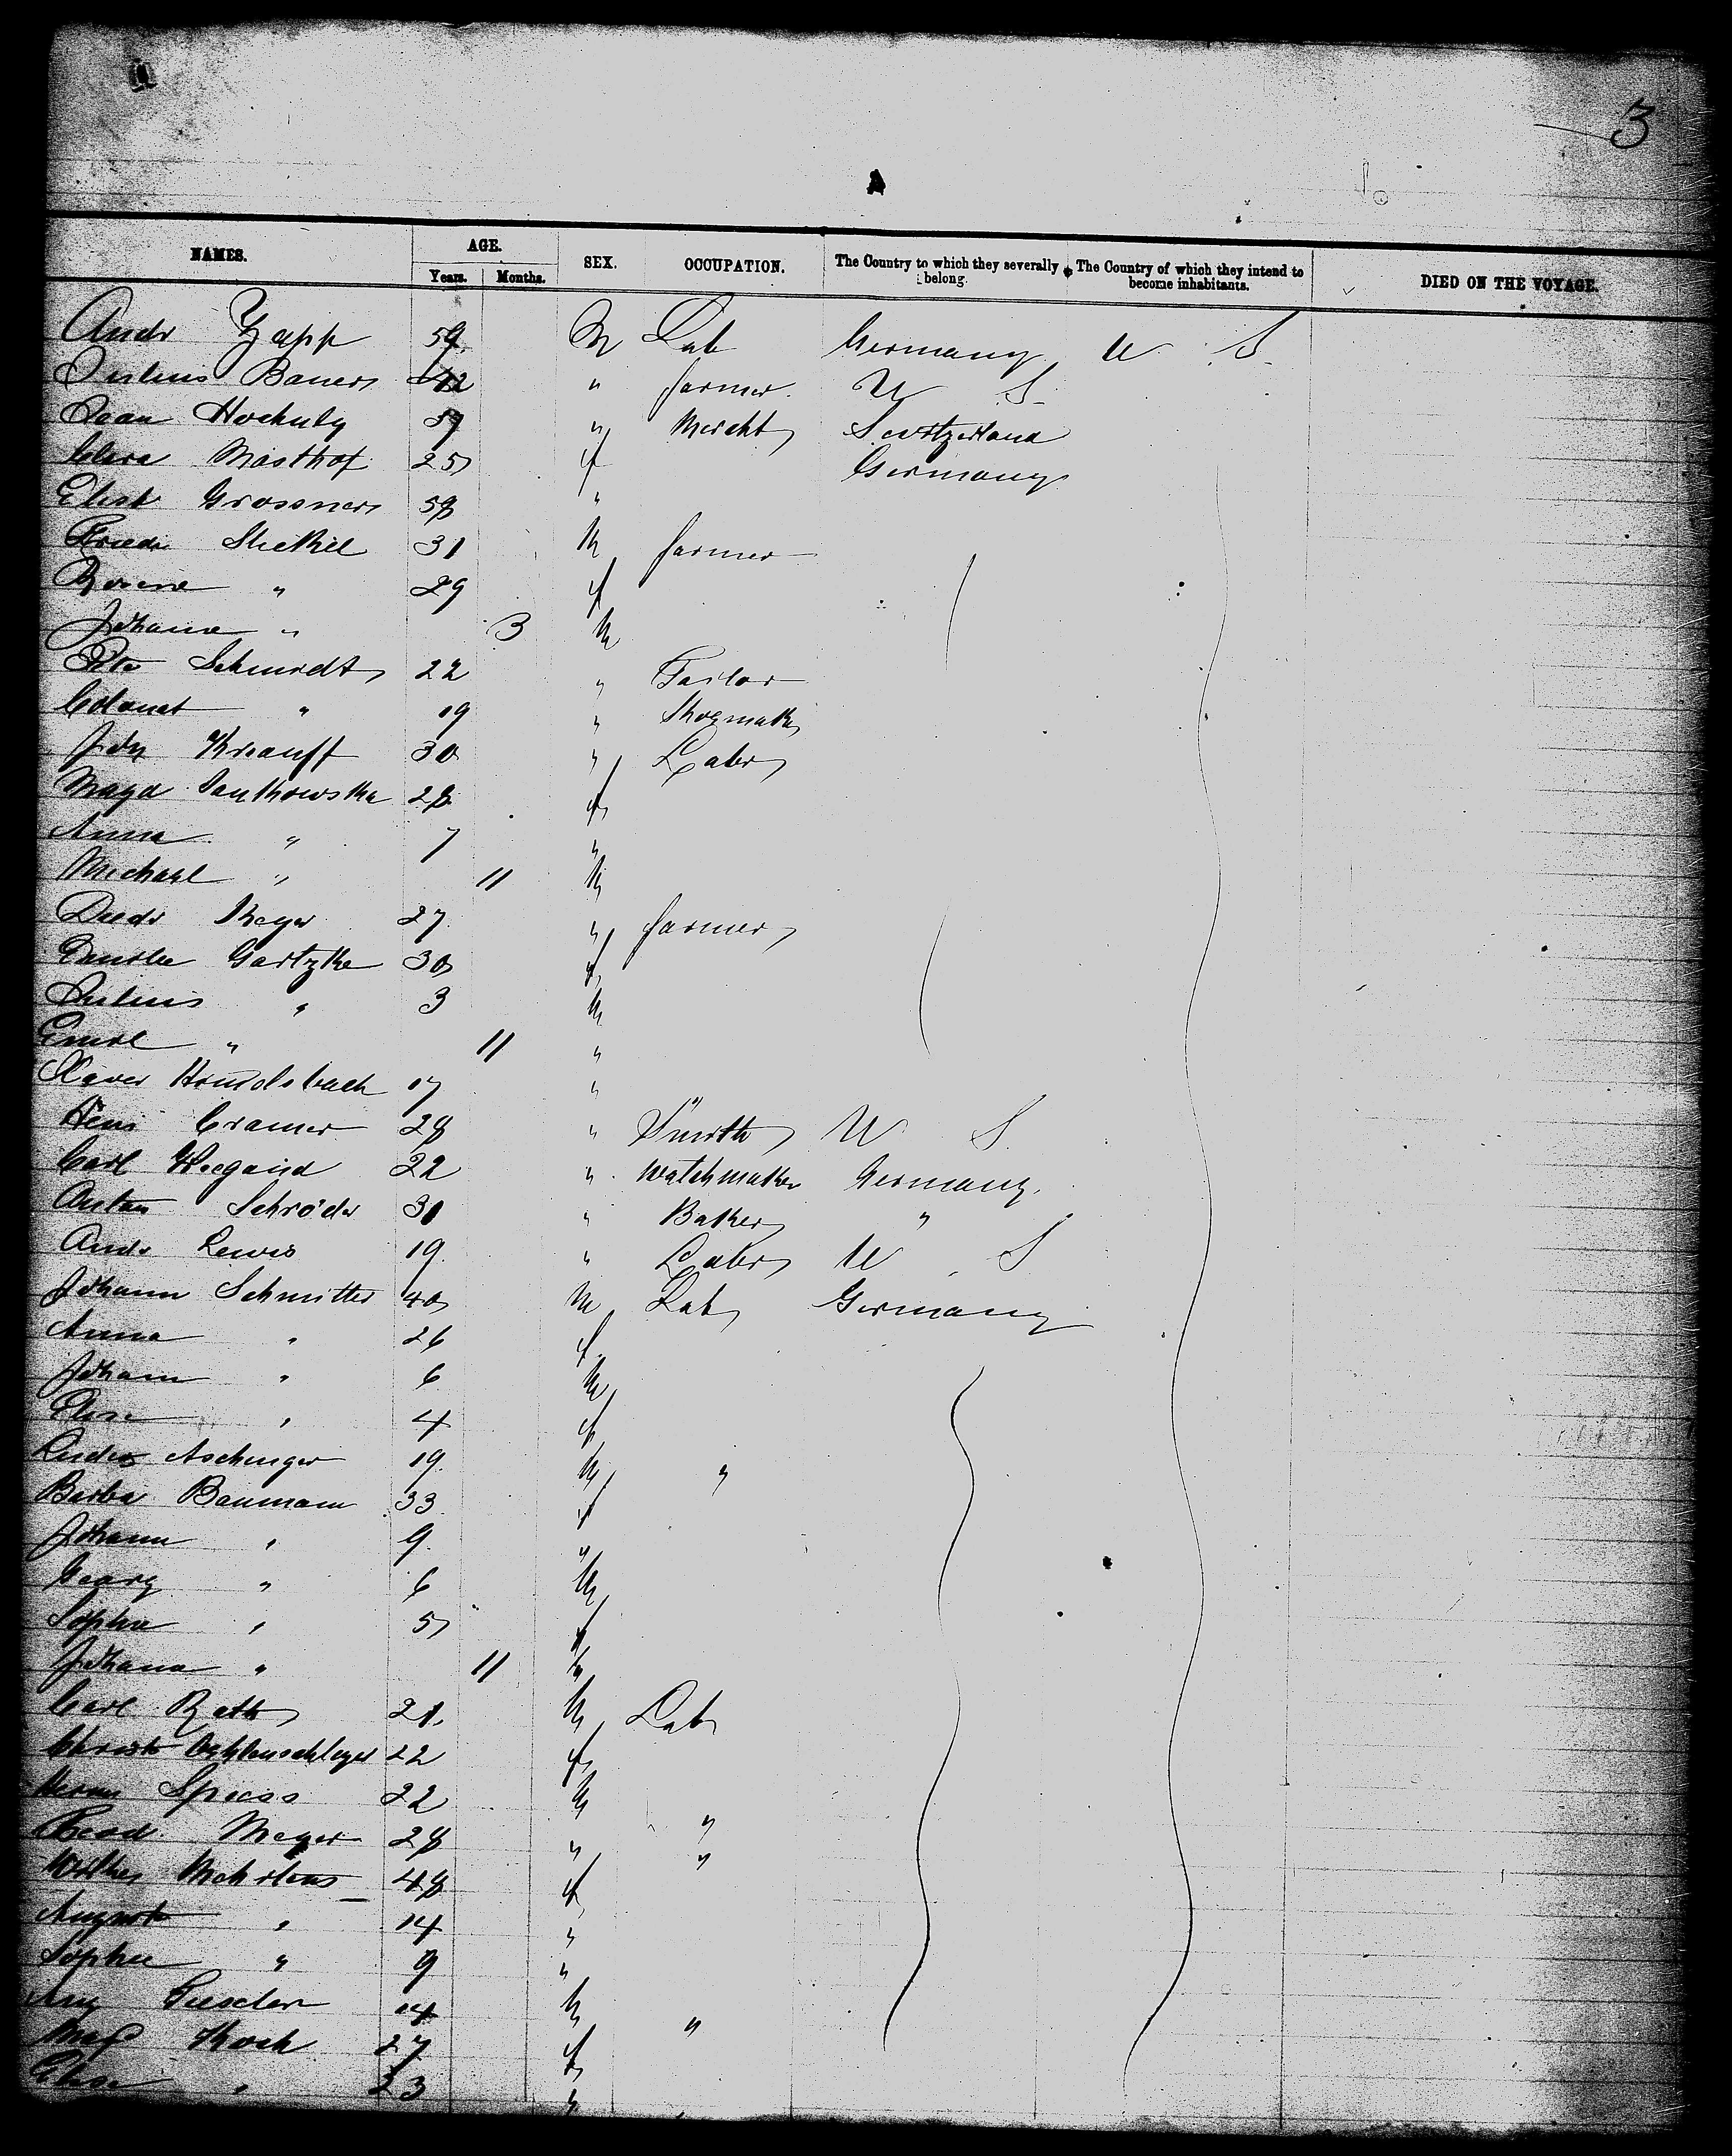 3
A
NAMES. AGE. SEX. OCCUPATION. The Country to which they severally belong. The Country of which they intend to become inhabitants. DIED ON THE VOYAGE.
Years. Months.
Andr Zapp 59 M Lab Germany U S
Julius Bauer 42 " farmer U S
Hochuly " Mercht Switzerland
Clara Masthof 25 f Germany
Elisb Grossner 58 "
Friedr Stickel 31 M farmer
Rosine " 29 f
Johann " 3 M
Schmidt 22 " Tailor
" 19 " Shoemaker
Joh Knauff 30 " Labr
Magd 28 f
Anna " 7 "
Michael " 11 M
Diedr 27 " farmer
Emilie Gartzke 30 f
Julius " 3 M
Emil " 11 "
Xaver 17 "
Heni Cramer 28 " Smith U S
Carl Wiegand 22 " Watchmaker Germany
Anton Schröder 31 " Baker "
Andr Lewis 19 " Labr U S
Johann Schmitter 40 M Lab Germany
Anna " 26 f
Johann " 6 M
Elise " 4 f
Aschinger 19 M "
Barba Baumann 33 f
Johann " 9 "
Georg " 6 M
Sophie " 5 f
Johann " 11
Carl Rath 21 M Lab
Christ 22 f
Herm Spiess 22 M "
Meyer 28 " "
Mehrtens 48 f
August " 14 "
Sophie " 9 "
Aug 14 M "
Koch 27 f
Elise " 23 "